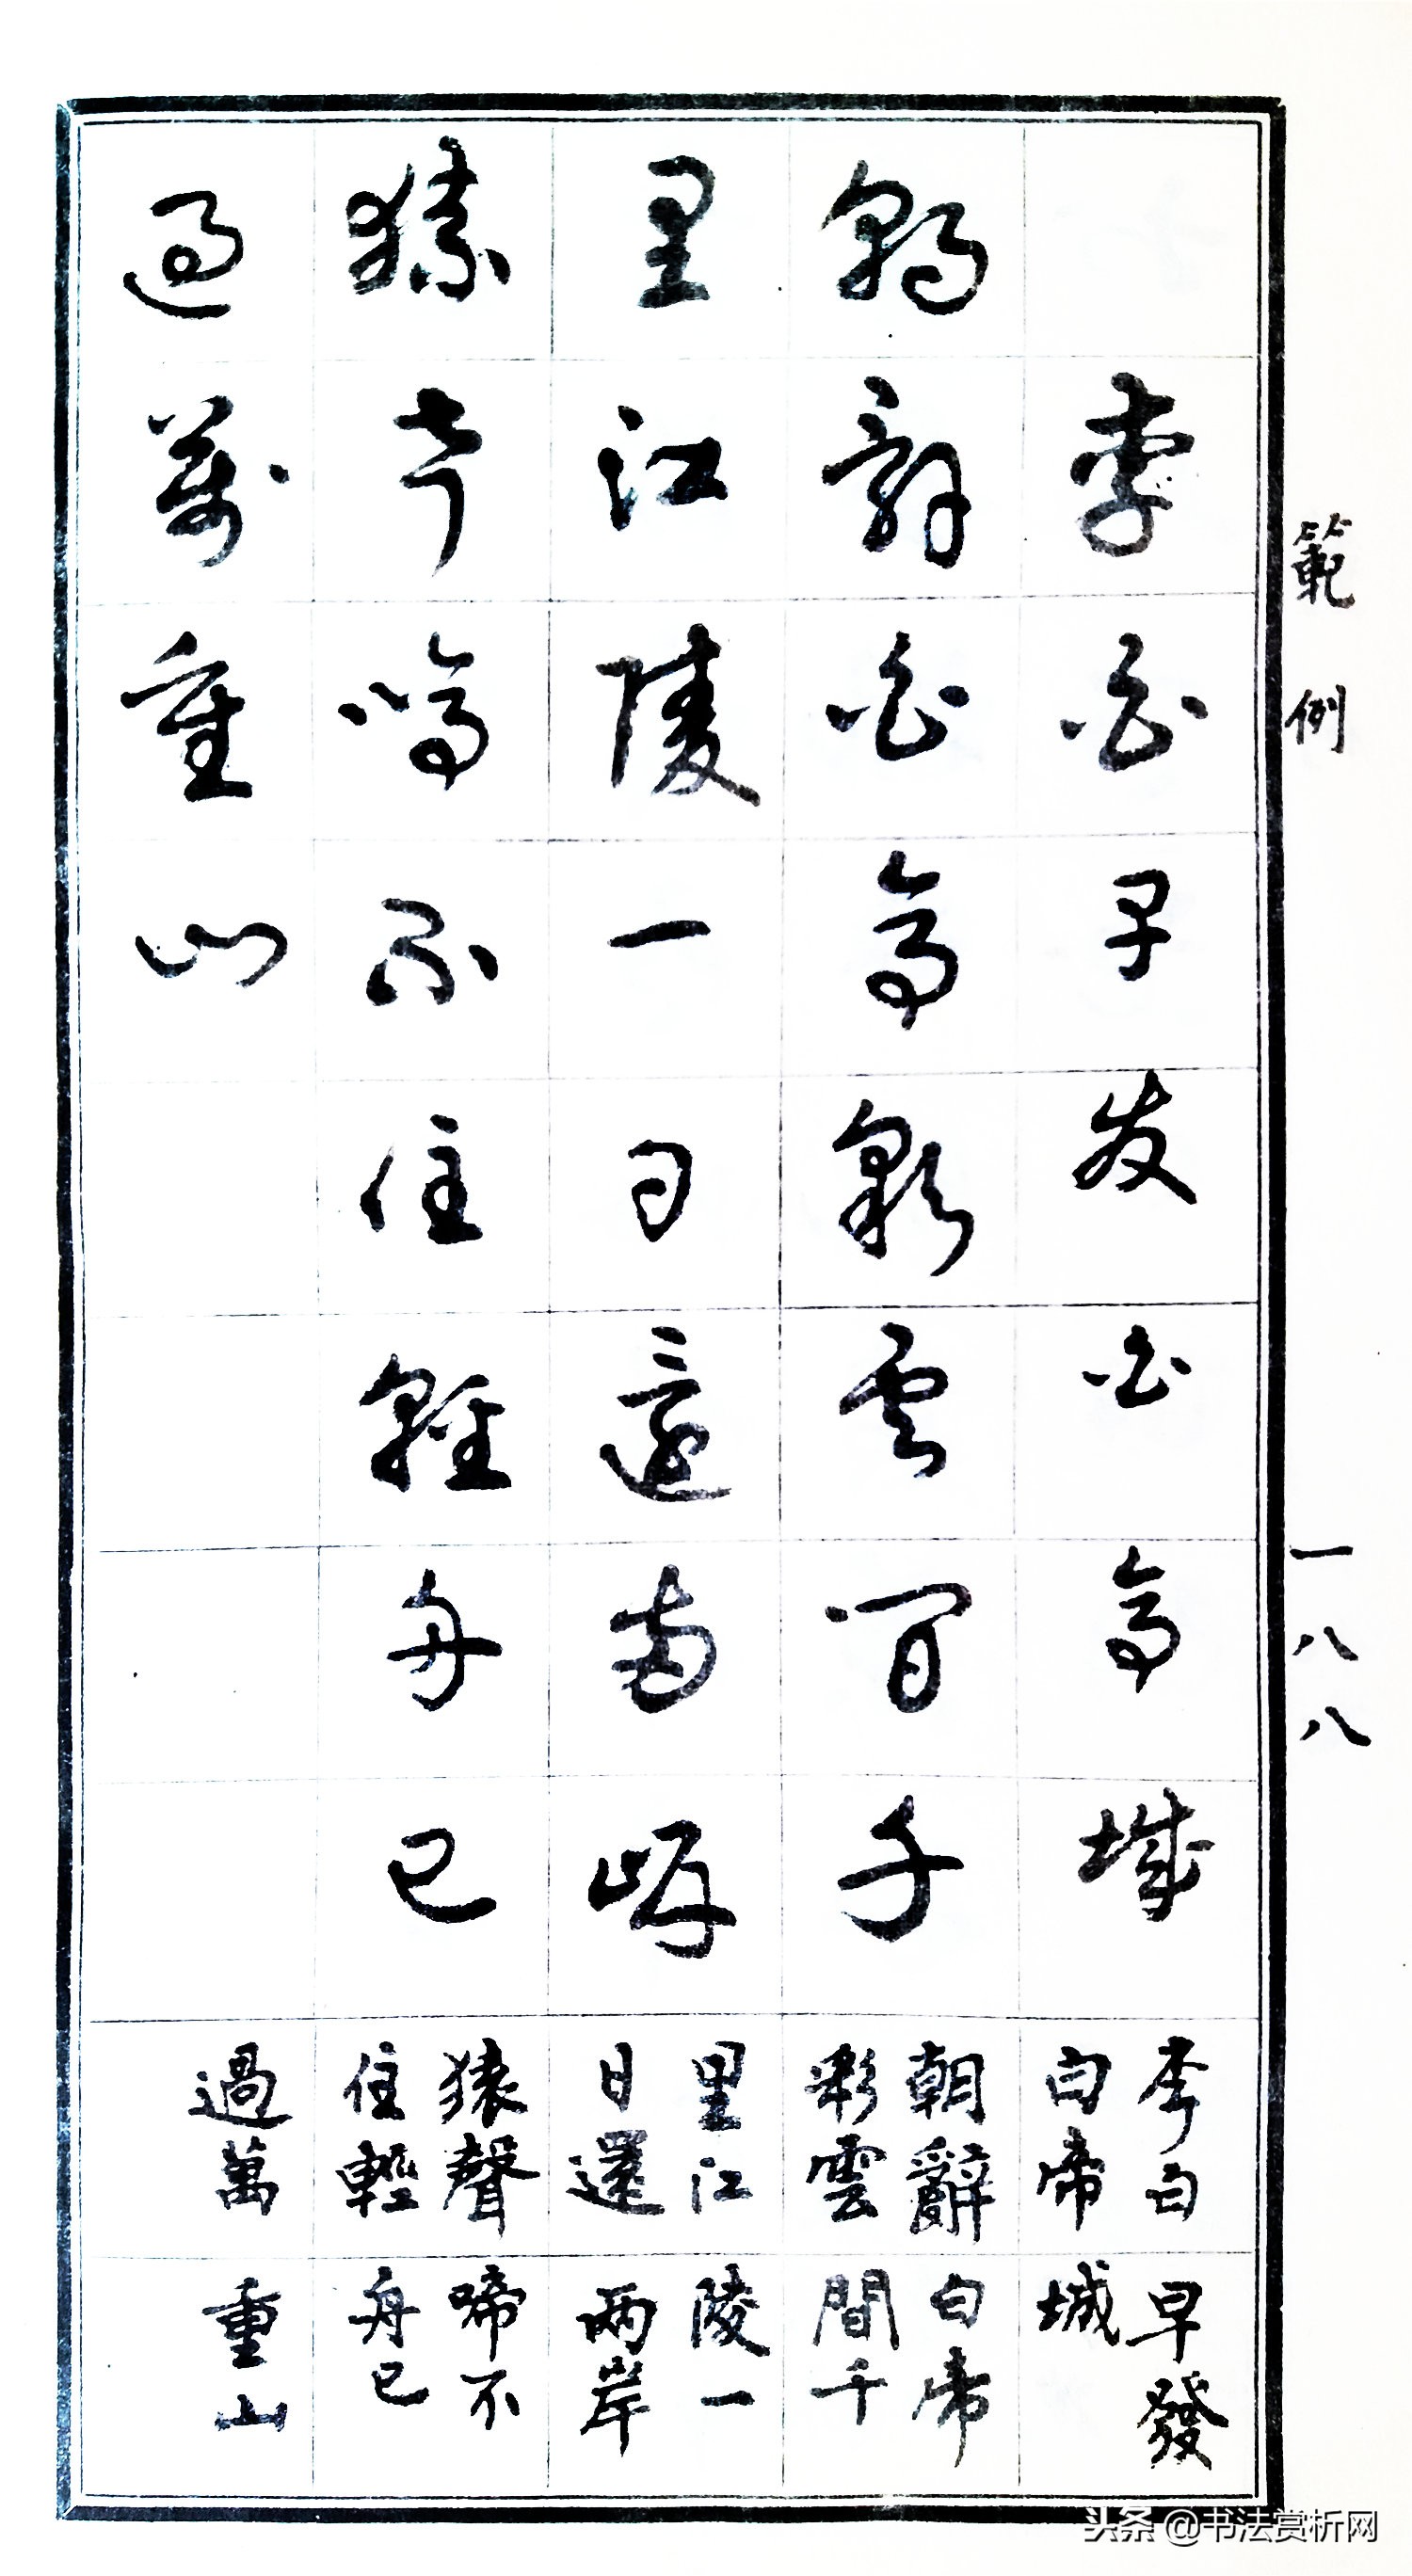 範例
一八八
李白早发白帝城
朝辭白帝彩雲間千
里江陵一日還両岸
猿聲啼不住輕舟已
過萬重山
李白早發
白帝城
朝辭白帝
彩雲間千
里江陵一
日還兩岸
猿聲啼不
住輕舟已
過萬重山
头条 @书法赏析网